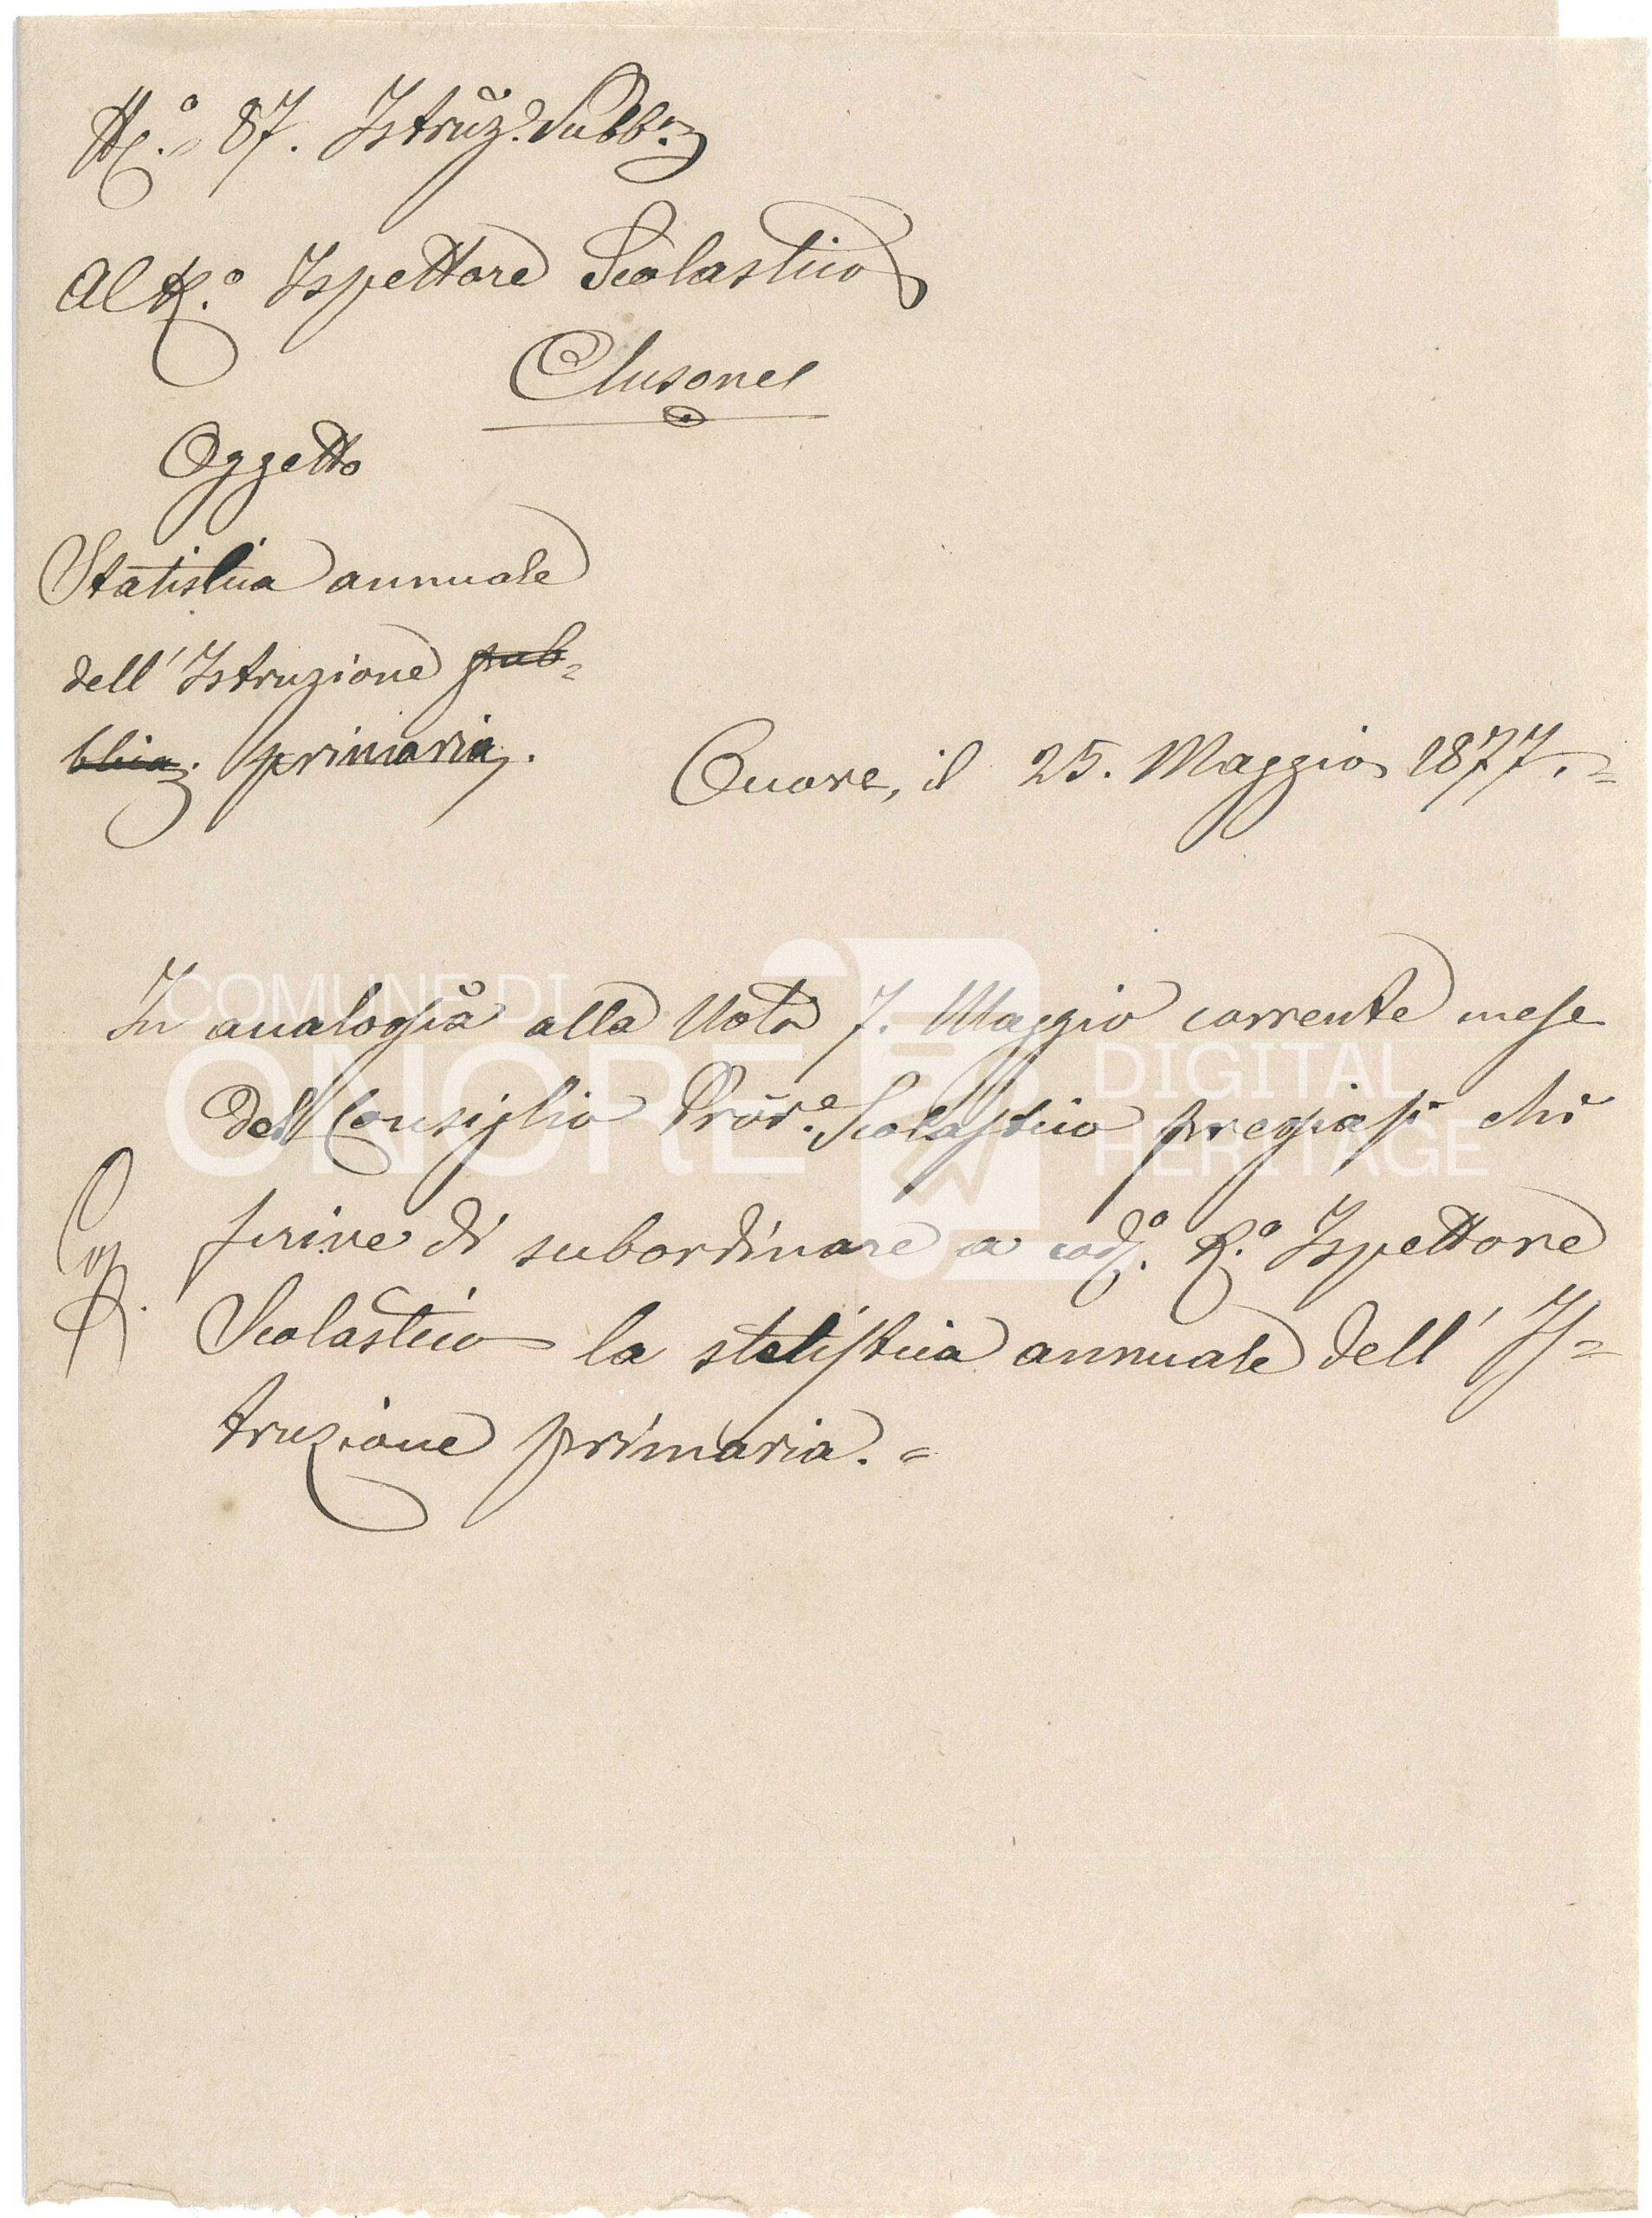 N.° 87. Istruz.e Pubb.a
Al R.° Ispettore Scolastico
Clusone
Oggetto
Statistica annuale
dell' Istruzione pub=
blica. primaria.
Onore, il 25. Maggio 1877.=
In analogia alla Nota 7. Maggio corrente mese
del Consiglio Prov.e Scolastico pregiasi chi
scrive di subordinare a cod.° R.° Ispettore
Scolastico la statistica annuale dell' Is=
truzione primaria.=
COMUNE DI
ONORE
DIGITAL
HERITAGE